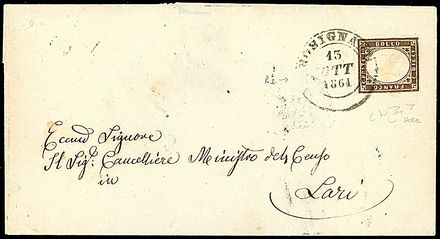 ROSIGNA
13
OTT
1861
BOLLO
FRANCO
Eccmo Signore
Il Sigr Cancelliere Ministro del Censo
in
Lari